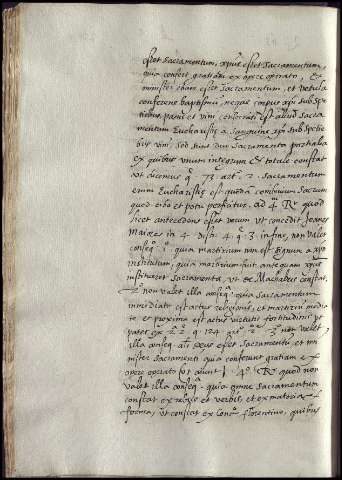 esset Sacramentum, xpus esset Sacramentum,
quia confert gratiam ex opere operato, &
minister etiam esset Sacramentum, et vetula
conferens baptismum, neque corpus xpi sub Spe-
tiebus panis et vini consecrati est aliud Sacra
mentum Eucharistiæ a Sanguine xpi sub Spetie
bus vini, sed sunt duo Sacramenta partialia
ex quibus unum integrum & totale constat
ut dicemus q. 73 art.º 2. Sacramentum
enim Eucharistiæ est quoddam convivium Sacrum
quod cibo et potu perficitur. ad 4. Rº quod
licet antecedens esset verum ut concedit Joanes
Maires in 4 dist. 4 q. 3 in fine, non valet
conseqª. quia martirium non est signum a xpo
institutum, quia martirium fuit antequam xpus
institueret Sacramenta, ut de Machabeis constat.
2º non valet illa conseqª. quia Sacramentum
inmediate est actus religionis, et martirium media
te et proxime est actus virtutis fortitudinis ut
patet ex 2. 2. q. 124 art. 2. 3º non valet
illa conseqª. xpus esset Sacramentum et mi
nister Sacramenti quia conferunt gratiam ex
opere operato 4º Rº quod non
valet illa conseqª. quia omne Sacramentum
constat ex rebus et verbis, et ex materia &
forma, ut constat ex Concº. florentino, quibus